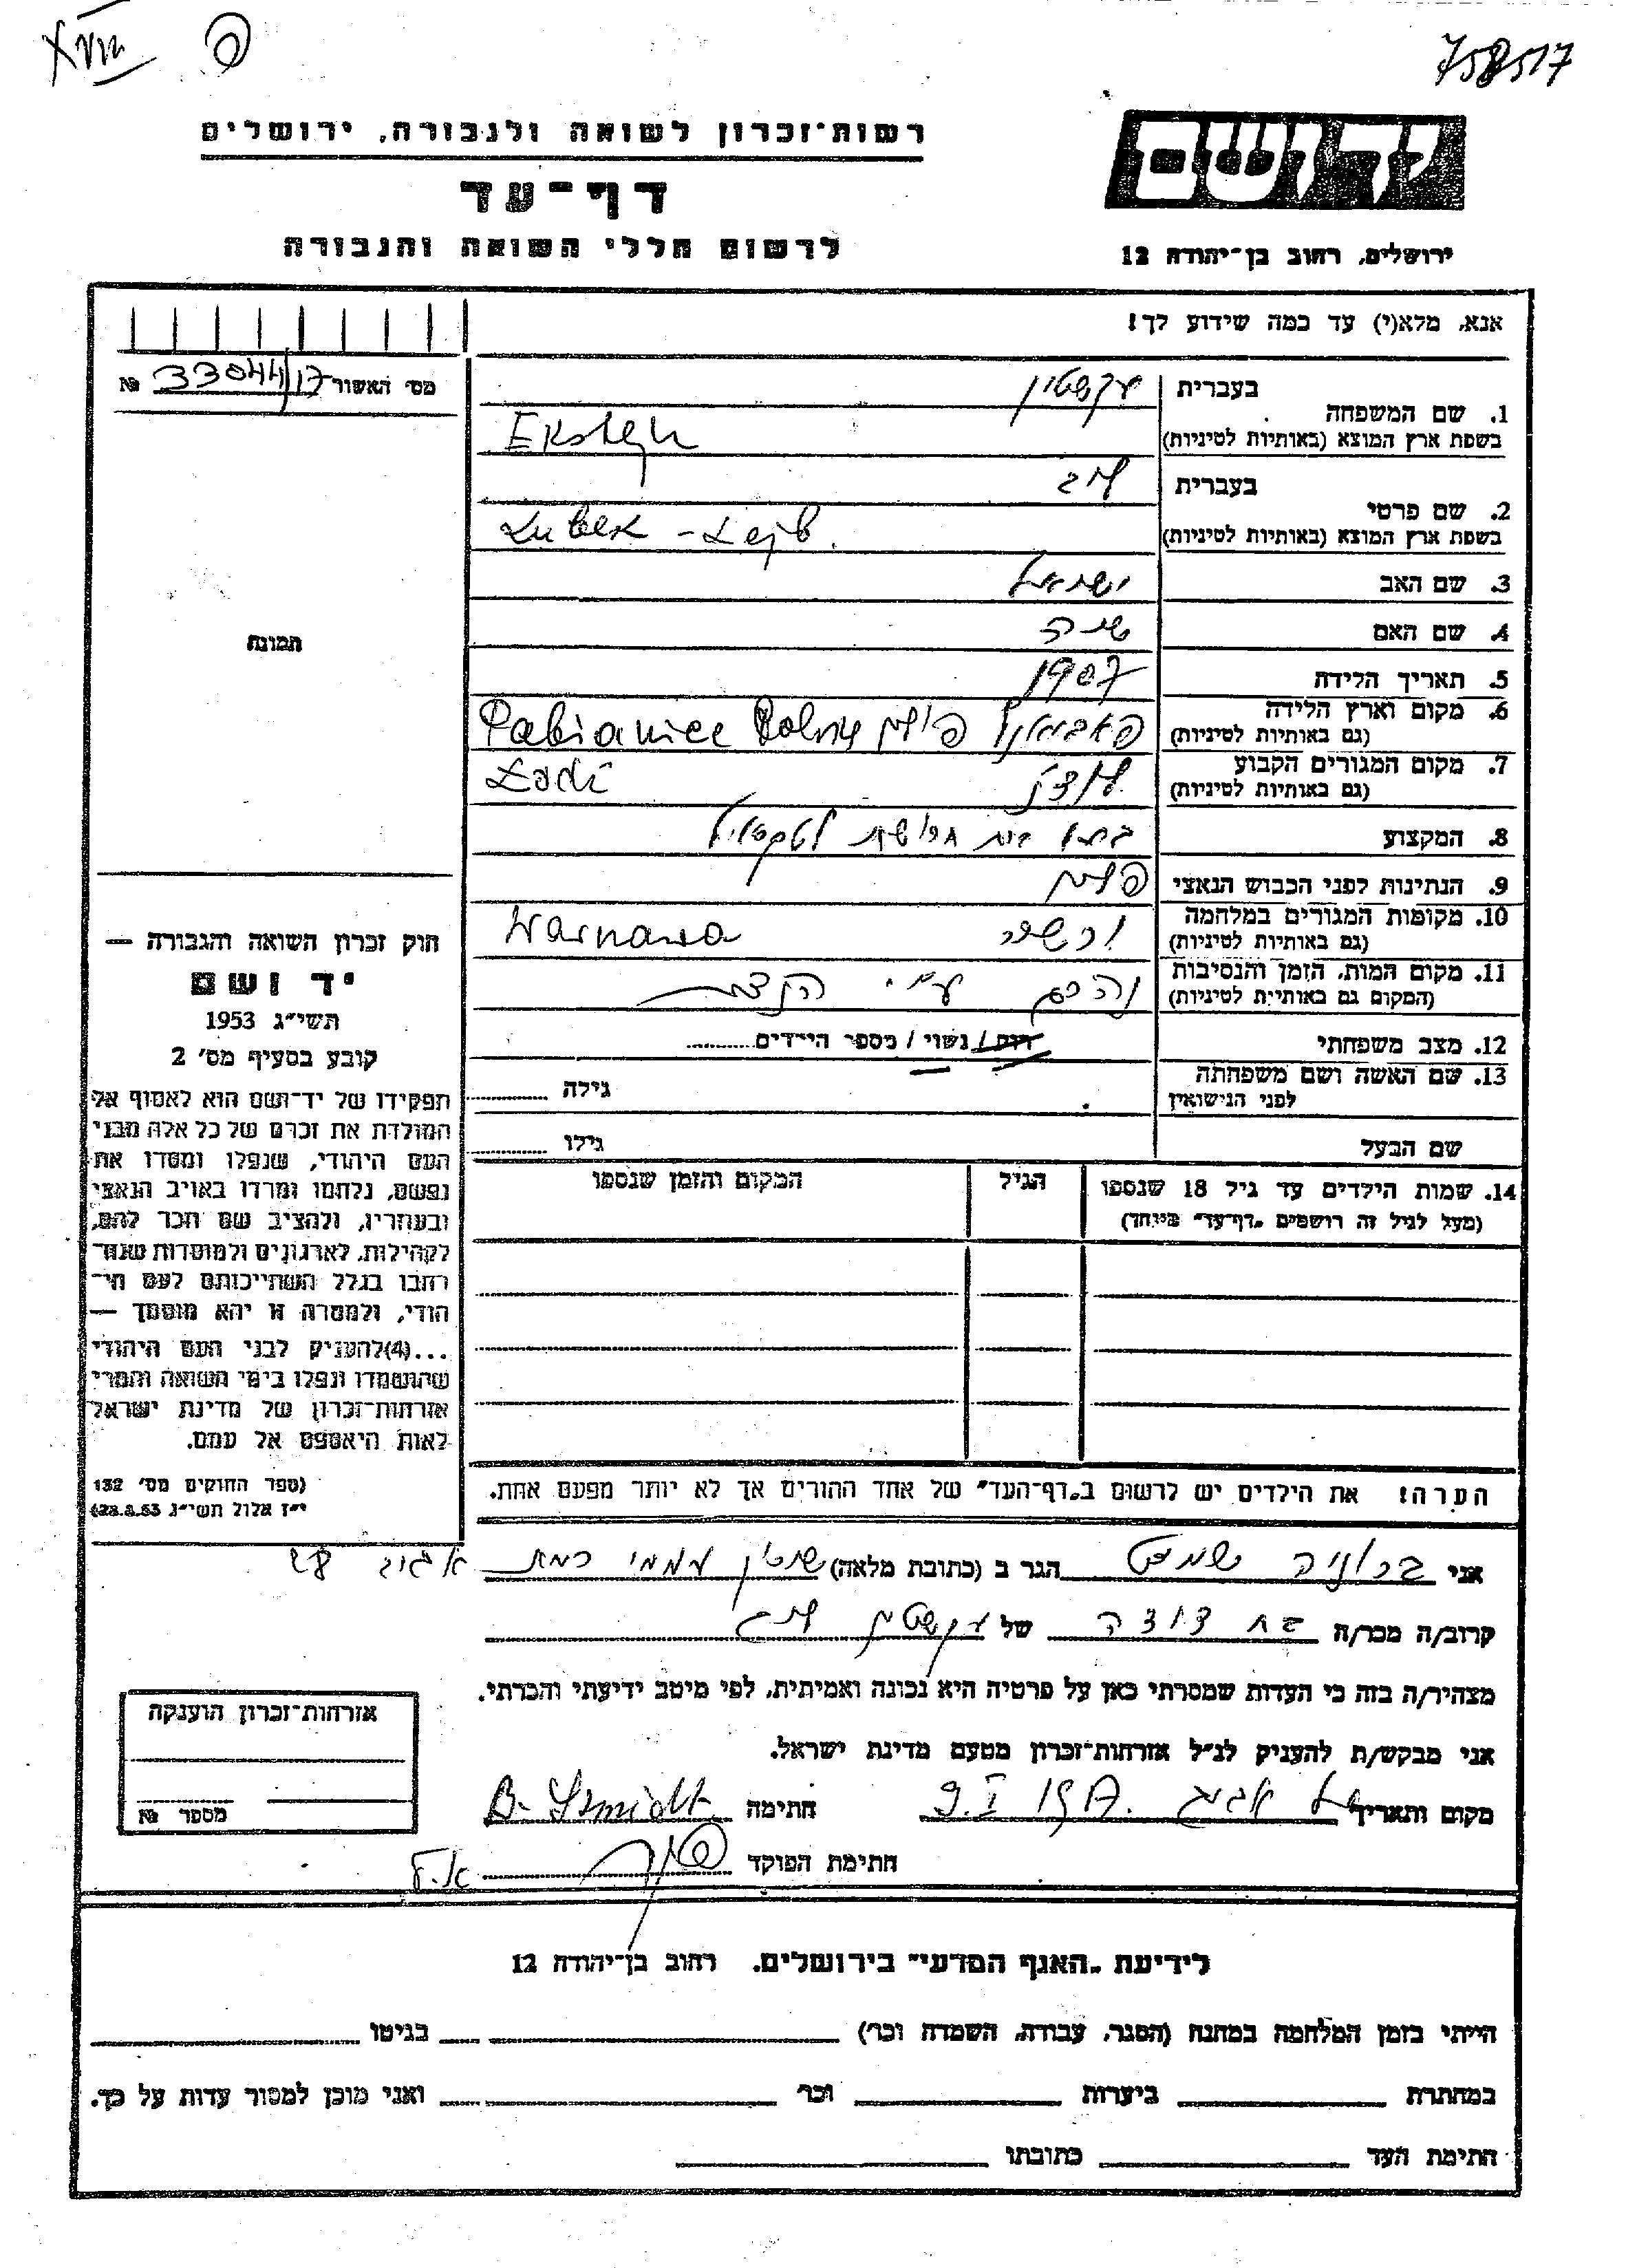 758517
XVIII פ
יד ושם
רשות־זכרון לשואה ולגבורה, ירושלים
דף־עד
לרשום חללי השואה והגבורה
ירושלים, רחוב בן־יהודה 12
אנא, מלא(י) עד כמה שידוע לך!
מס׳ האשור 33044/17 №
1. שם המשפחה
בעברית עקשטיין
בשפת ארץ המוצא (באותיות לטיניות) Eksztejn
2. שם פרטי
בעברית לייב
בשפת ארץ המוצא (באותיות לטיניות) Lubek - Lejb
3. שם האב ישראל
4. שם האם
5. תאריך הלידה 1907
6. מקום וארץ הלידה
(גם באותיות לטיניות) פאביאניץ פולין Pabianice
7. מקום המגורים הקבוע
(גם באותיות לטיניות) לודז׳ Łódź
8. המקצוע בעל בית חרושת לטקסטיל
9. הנתינות לפני הכבוש הנאצי פולין
10. מקומות המגורים במלחמה
(גם באותיות לטיניות) ורשה Warszawa
11. מקום המות, הזמן והנסיבות
(המקום גם באותיות לטיניות) נהרג ע״י הנצים
12. מצב משפחתי רווק / נשוי / מספר הילדים
13. שם האשה ושם משפחתה
לפני הנישואין
גילה
שם הבעל
גילו
14. שמות הילדים עד גיל 18 שנספו
(מעל לגיל זה רושמים „דף־עד״ מיוחד)
הגיל
המקום והזמן שנספו
הערה! את הילדים יש לרשום ב„דף־העד״ של אחד ההורים אך לא יותר מפעם אחת.
תמונה
חוק זכרון השואה והגבורה —
יד ושם
תשי״ג 1953
קובע בסעיף מס׳ 2
תפקידו של יד־ושם הוא לאסוף אל
המולדת את זכרם של כל אלה מבני
העם היהודי, שנפלו ומסרו את
נפשם, נלחמו ומרדו באויב הנאצי
ובעוזריו, ולהציב שם וזכר להם,
לקהילות, לארגונים ולמוסדות שנח־
רבו בגלל השתייכותם לעם הי־
הודי, ולמטרה זו יהא מוסמך —
...(4)להעניק לבני העם היהודי
שהושמדו ונפלו בימי השואה והמרי
אזרחות־זכרון של מדינת ישראל
לאות היאספם אל עמם.
(ספר החוקים מס׳ 132
י״ז אלול תשי״ג 28.8.53)
אני ברוניה שמידט הגר ב (כתובת מלאה) שיכון עממי רמת אביב
קרוב/ה מכר/ה בת דודה של עקשטיין לייב
מצהיר/ה בזה כי העדות שמסרתי כאן על פרטיה היא נכונה ואמיתית, לפי מיטב ידיעתי והכרתי.
אני מבקש/ת להעניק לנ״ל אזרחות־זכרון מטעם מדינת ישראל.
מקום ותאריך תל אביב 9.I חתימה B. Szmidt
חתימת הפוקד
אזרחות־זכרון הוענקה
מספר №
לידיעת „האגף המדעי״ בירושלים. רחוב בן־יהודה 12
הייתי בזמן המלחמה במחנה (הסגר, עבודה, השמדה וכו׳) בגיטו
במחתרת ביערות וכו׳ ואני מוכן למסור עדות על כך.
חתימת העד כתובתו